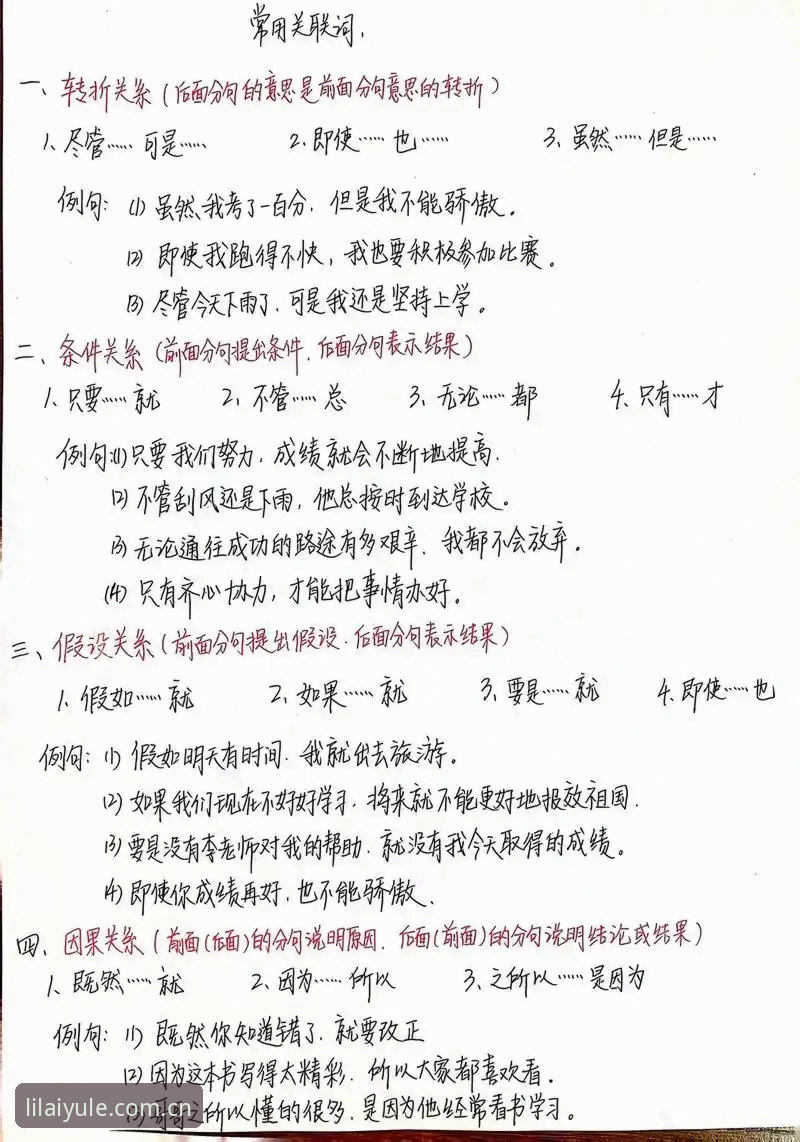 常用关联词,
一、转折关系(后面分句的意思是前面分句意思的转折)
1、尽管…… 可是…… 2、即使…… 也…… 3、虽然…… 但是……
例句: (1) 虽然我考了一百分, 但是我不能骄傲。
(2) 即使我跑得不快, 我也要积极参加比赛。
(3) 尽管今天下雨了, 可是我还是坚持上学。
二、条件关系(前面分句提出条件, 后面分句表示结果)
1、只要…… 就 2、不管…… 总 3、无论…… 都 4、只有…… 才
例句:(1)只要我们努力, 成绩就会不断地提高.
(2) 不管刮风还是下雨, 他总按时到达学校。
(3) 无论通往成功的路途有多艰辛, 我都不会放弃。
(4) 只有齐心协力, 才能把事情办好。
三、假设关系(前面分句提出假设, 后面分句表示结果)
1、假如…… 就 2、如果…… 就 3、要是…… 就 4、即使…… 也
例句: (1) 假如明天有时间, 我就出去旅游。
(2) 如果我们现在不好好学习, 将来就不能更好地报效祖国.
(3) 要是没有李老师对我的帮助, 就没有我今天取得的成绩。
(4) 即使你成绩再好, 也不能骄傲.
四、因果关系(前面(后面)的分句说明原因, 后面(前面)的分句说明结论或结果)
1、既然…… 就 2、因为…… 所以 3、之所以…… 是因为
例句: (1) 既然你知道错了, 就要改正
(2) 因为这本书写得太精彩, 所以大家都喜欢看。
(3) 哥哥之所以懂的很多, 是因为他经常看书学习。
lilaiyule.com.cn